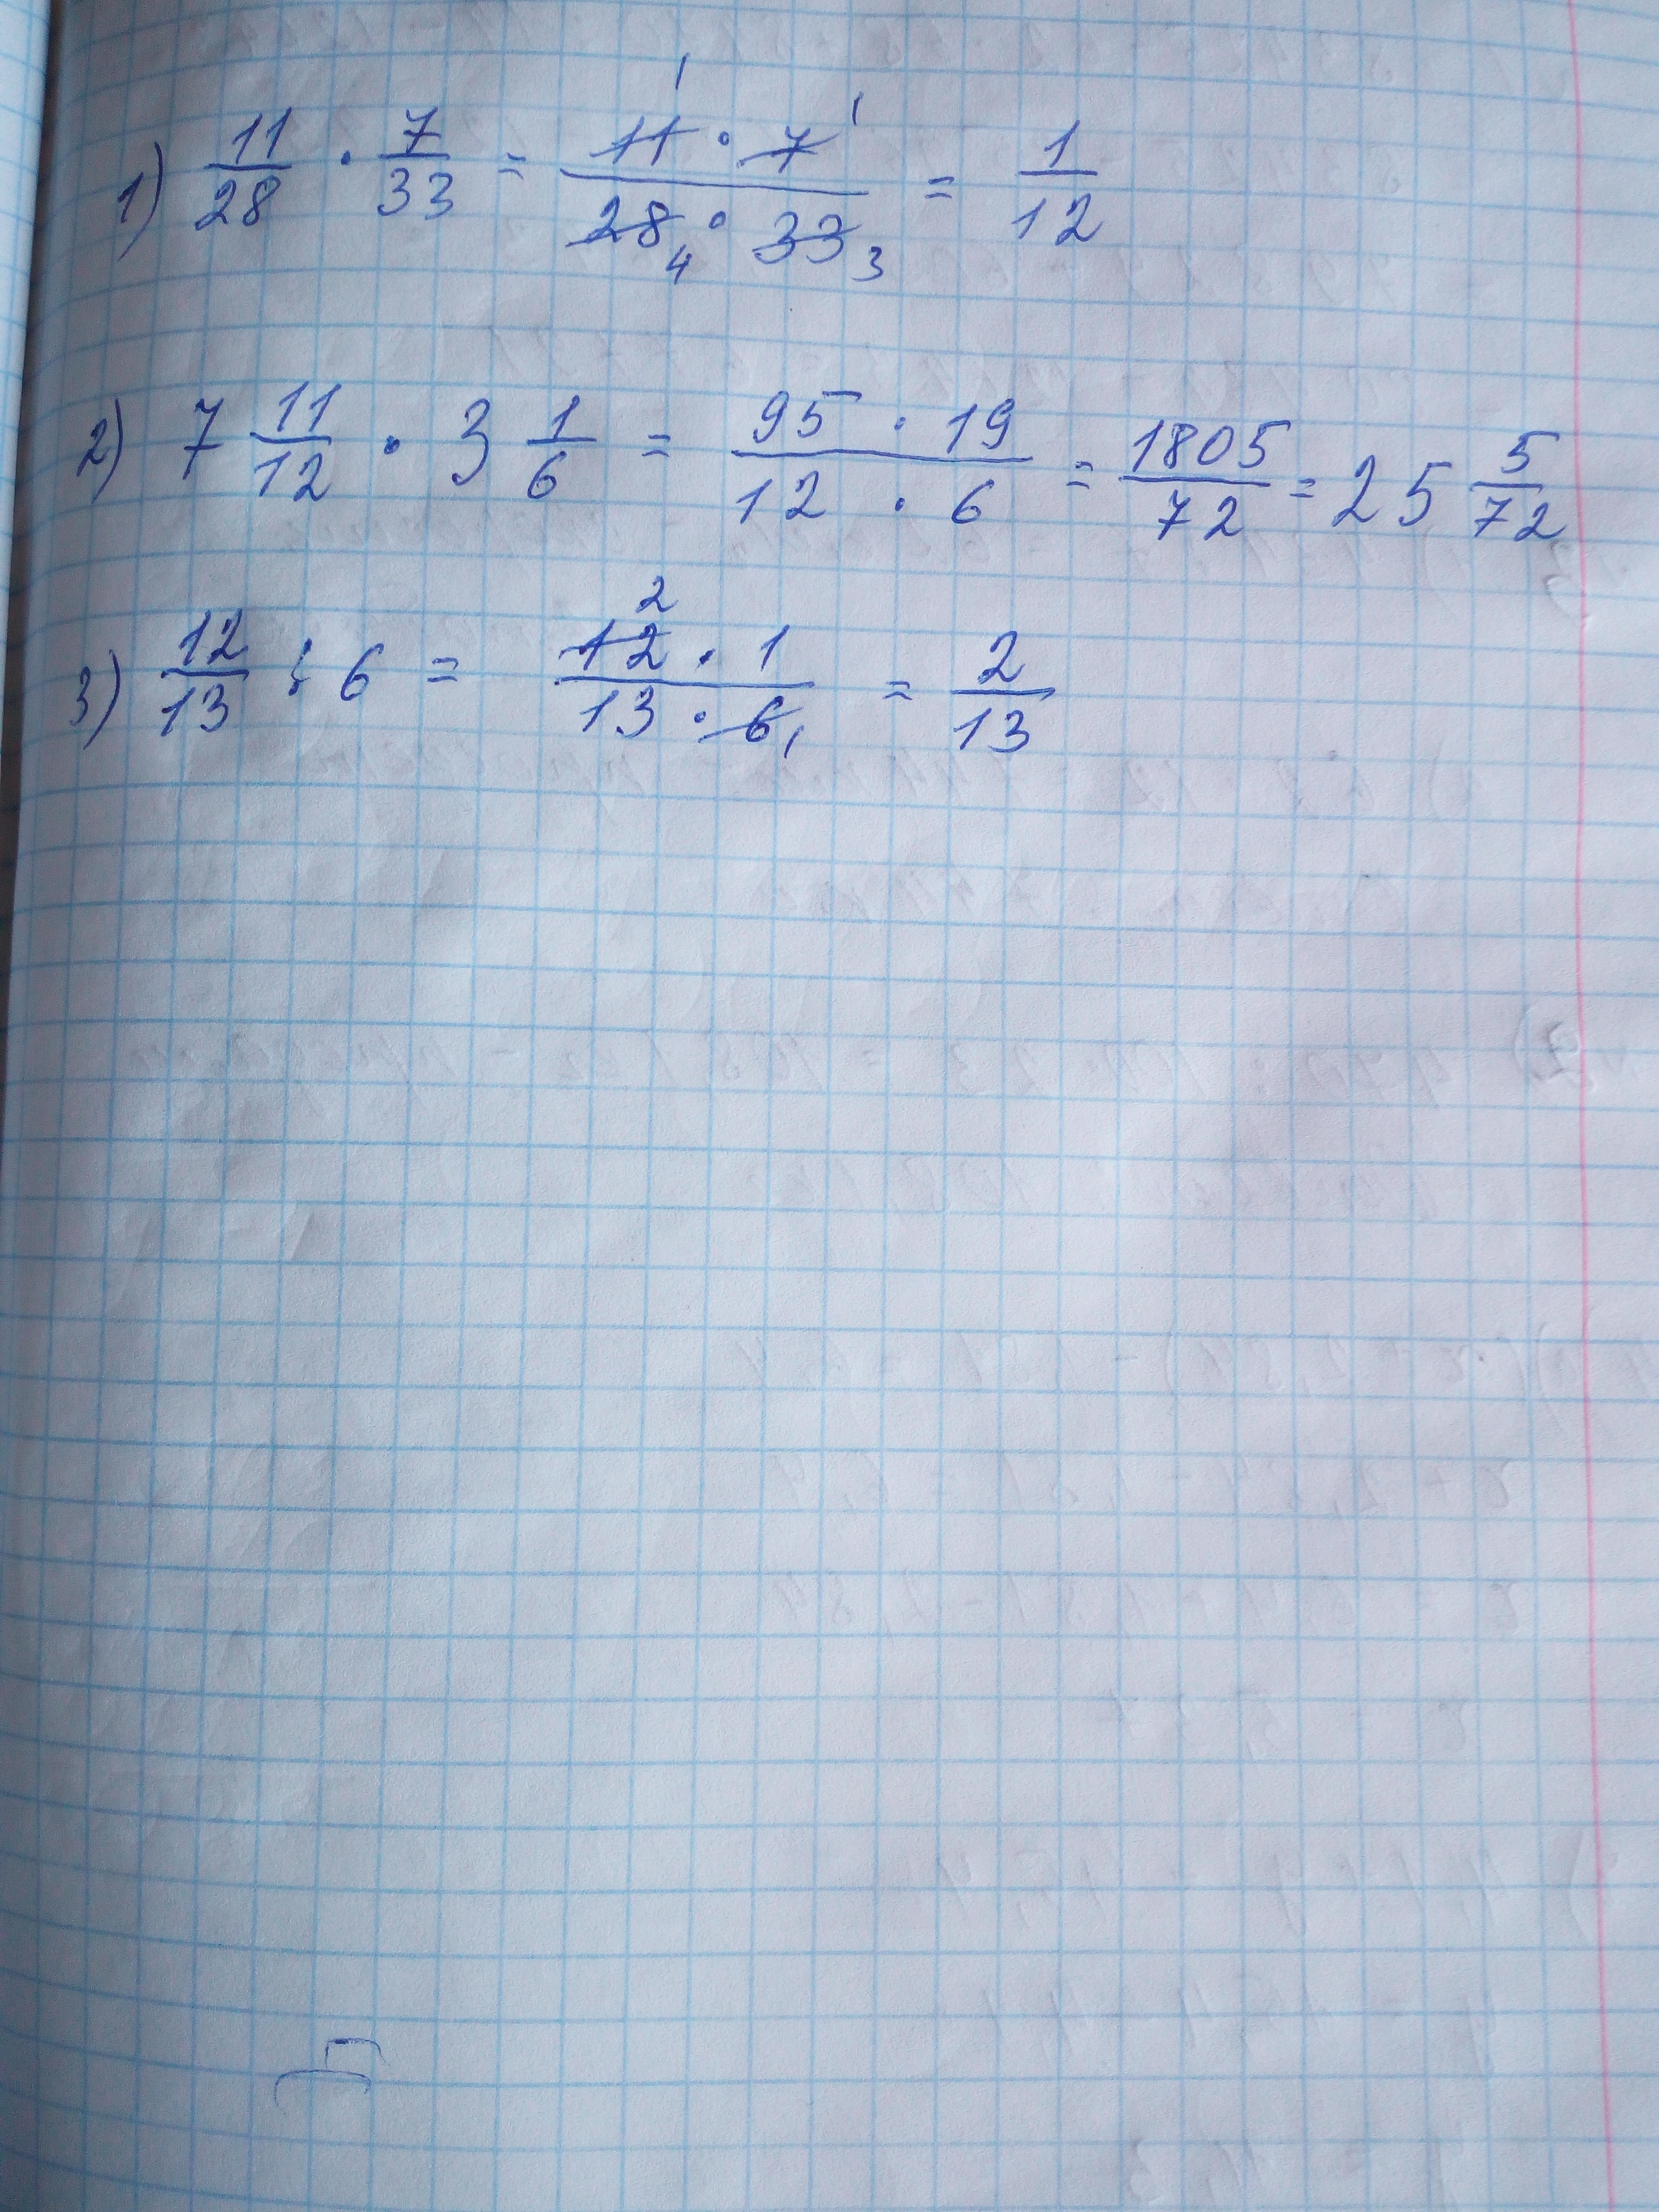 1) 11/28 · 7/33 = 11 1 · 7 1 / 28 4 · 33 3 = 1/12
2) 7 11/12 · 3 1/6 = 95 · 19 / 12 · 6 = 1805/72 = 25 5/72
3) 12/13 : 6 = 12 2 · 1 / 13 · 6 1 = 2/13